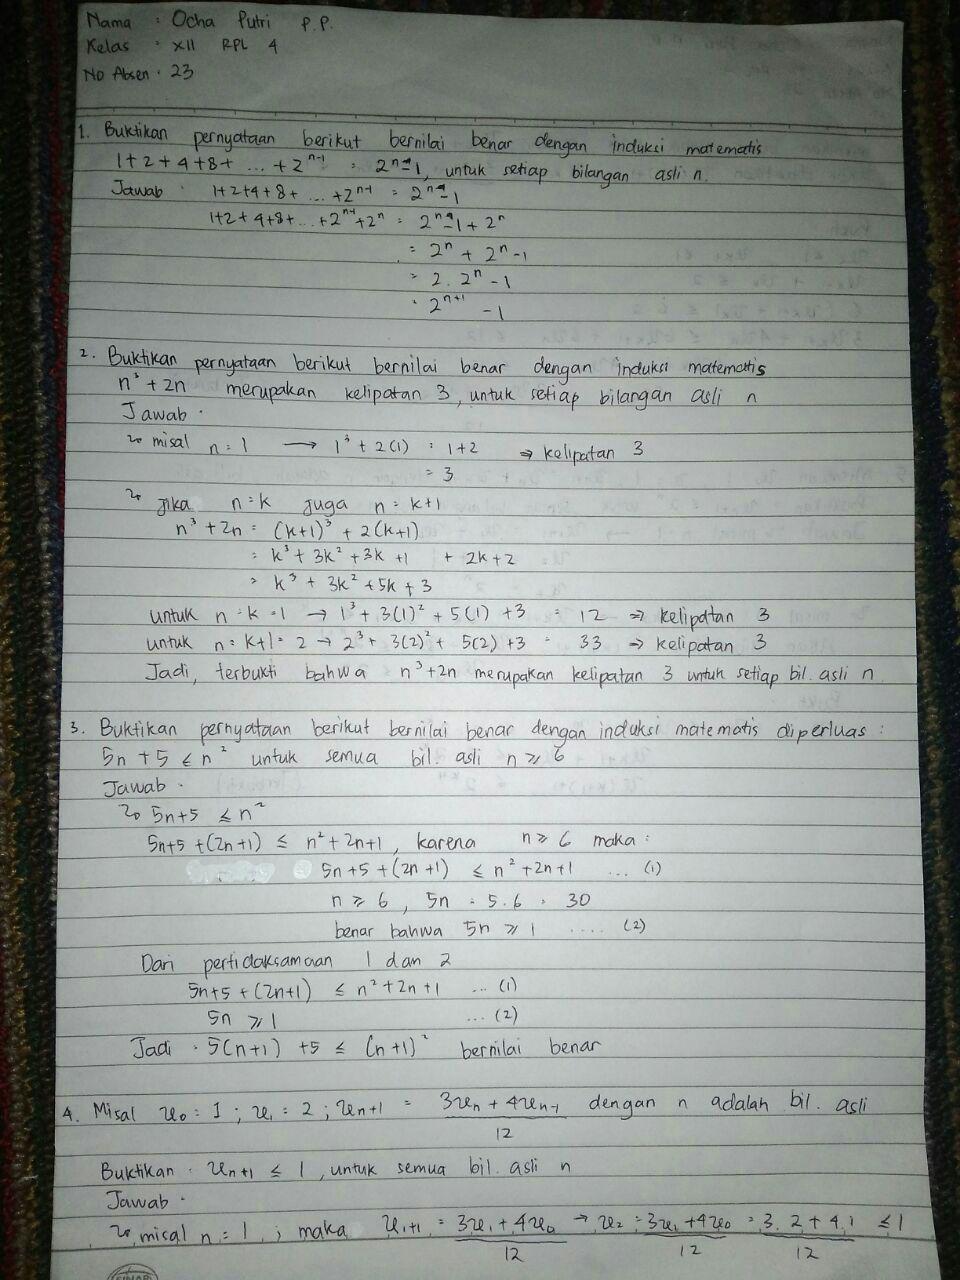 Nama : Ocha Putri P.P.
Kelas : XII RPL 4
No Absen : 23
1. Buktikan pernyataan berikut bernilai benar dengan induksi matematis
1+2+4+8+ ... +2ⁿ⁻¹ = 2ⁿ-1, untuk setiap bilangan asli n.
Jawab : 1+2+4+8+ ... +2ⁿ⁻¹ = 2ⁿ-1
1+2+4+8+...+2ⁿ⁻¹+2ⁿ = 2ⁿ-1+2ⁿ
= 2ⁿ + 2ⁿ-1
= 2. 2ⁿ - 1
= 2ⁿ⁺¹ - 1
2. Buktikan pernyataan berikut bernilai benar dengan induksi matematis
n³ + 2n merupakan kelipatan 3, untuk setiap bilangan asli n
Jawab :
misal n = 1 → 1³ + 2(1) = 1+2 ⇒ kelipatan 3
= 3
jika n = k juga n = k+1
n³ + 2n = (k+1)³ + 2(k+1)
= k³ + 3k² + 3k + 1 + 2k+2
= k³ + 3k² + 5k + 3
untuk n = k = 1 → 1³ + 3(1)² + 5(1) + 3 = 12 ⇒ kelipatan 3
untuk n = k+1 = 2 → 2³ + 3(2)² + 5(2) + 3 = 33 ⇒ kelipatan 3
Jadi, terbukti bahwa n³+2n merupakan kelipatan 3 untuk setiap bil. asli n.
3. Buktikan pernyataan berikut bernilai benar dengan induksi matematis diperluas :
5n + 5 ≤ n² untuk semua bil. asli n ≥ 6
Jawab :
5n+5 ≤ n²
5n+5 +(2n+1) ≤ n² + 2n+1, karena n ≥ 6 maka :
5n+5 + (2n+1) ≤ n² + 2n+1 ... (1)
n ≥ 6, 5n = 5.6 = 30
benar bahwa 5n ≥ 1 .... (2)
Dari pertidaksamaan 1 dan 2
5n+5 + (2n+1) ≤ n² + 2n + 1 ... (1)
5n ≥ 1 ... (2)
Jadi : 5(n+1) +5 ≤ (n+1)² bernilai benar
4. Misal u₀ = 1 ; u₁ = 2 ; uₙ₊₁ = 3uₙ + 4uₙ₋₁ dengan n adalah bil. asli
12
Buktikan : uₙ₊₁ ≤ 1, untuk semua bil. asli n
Jawab :
misal n = 1, ; maka u₁₊₁ = 3u₁ + 4u₀ → u₂ = 3u₁ + 4u₀ = 3. 2 + 4.1 ≤ 1
12 12 12